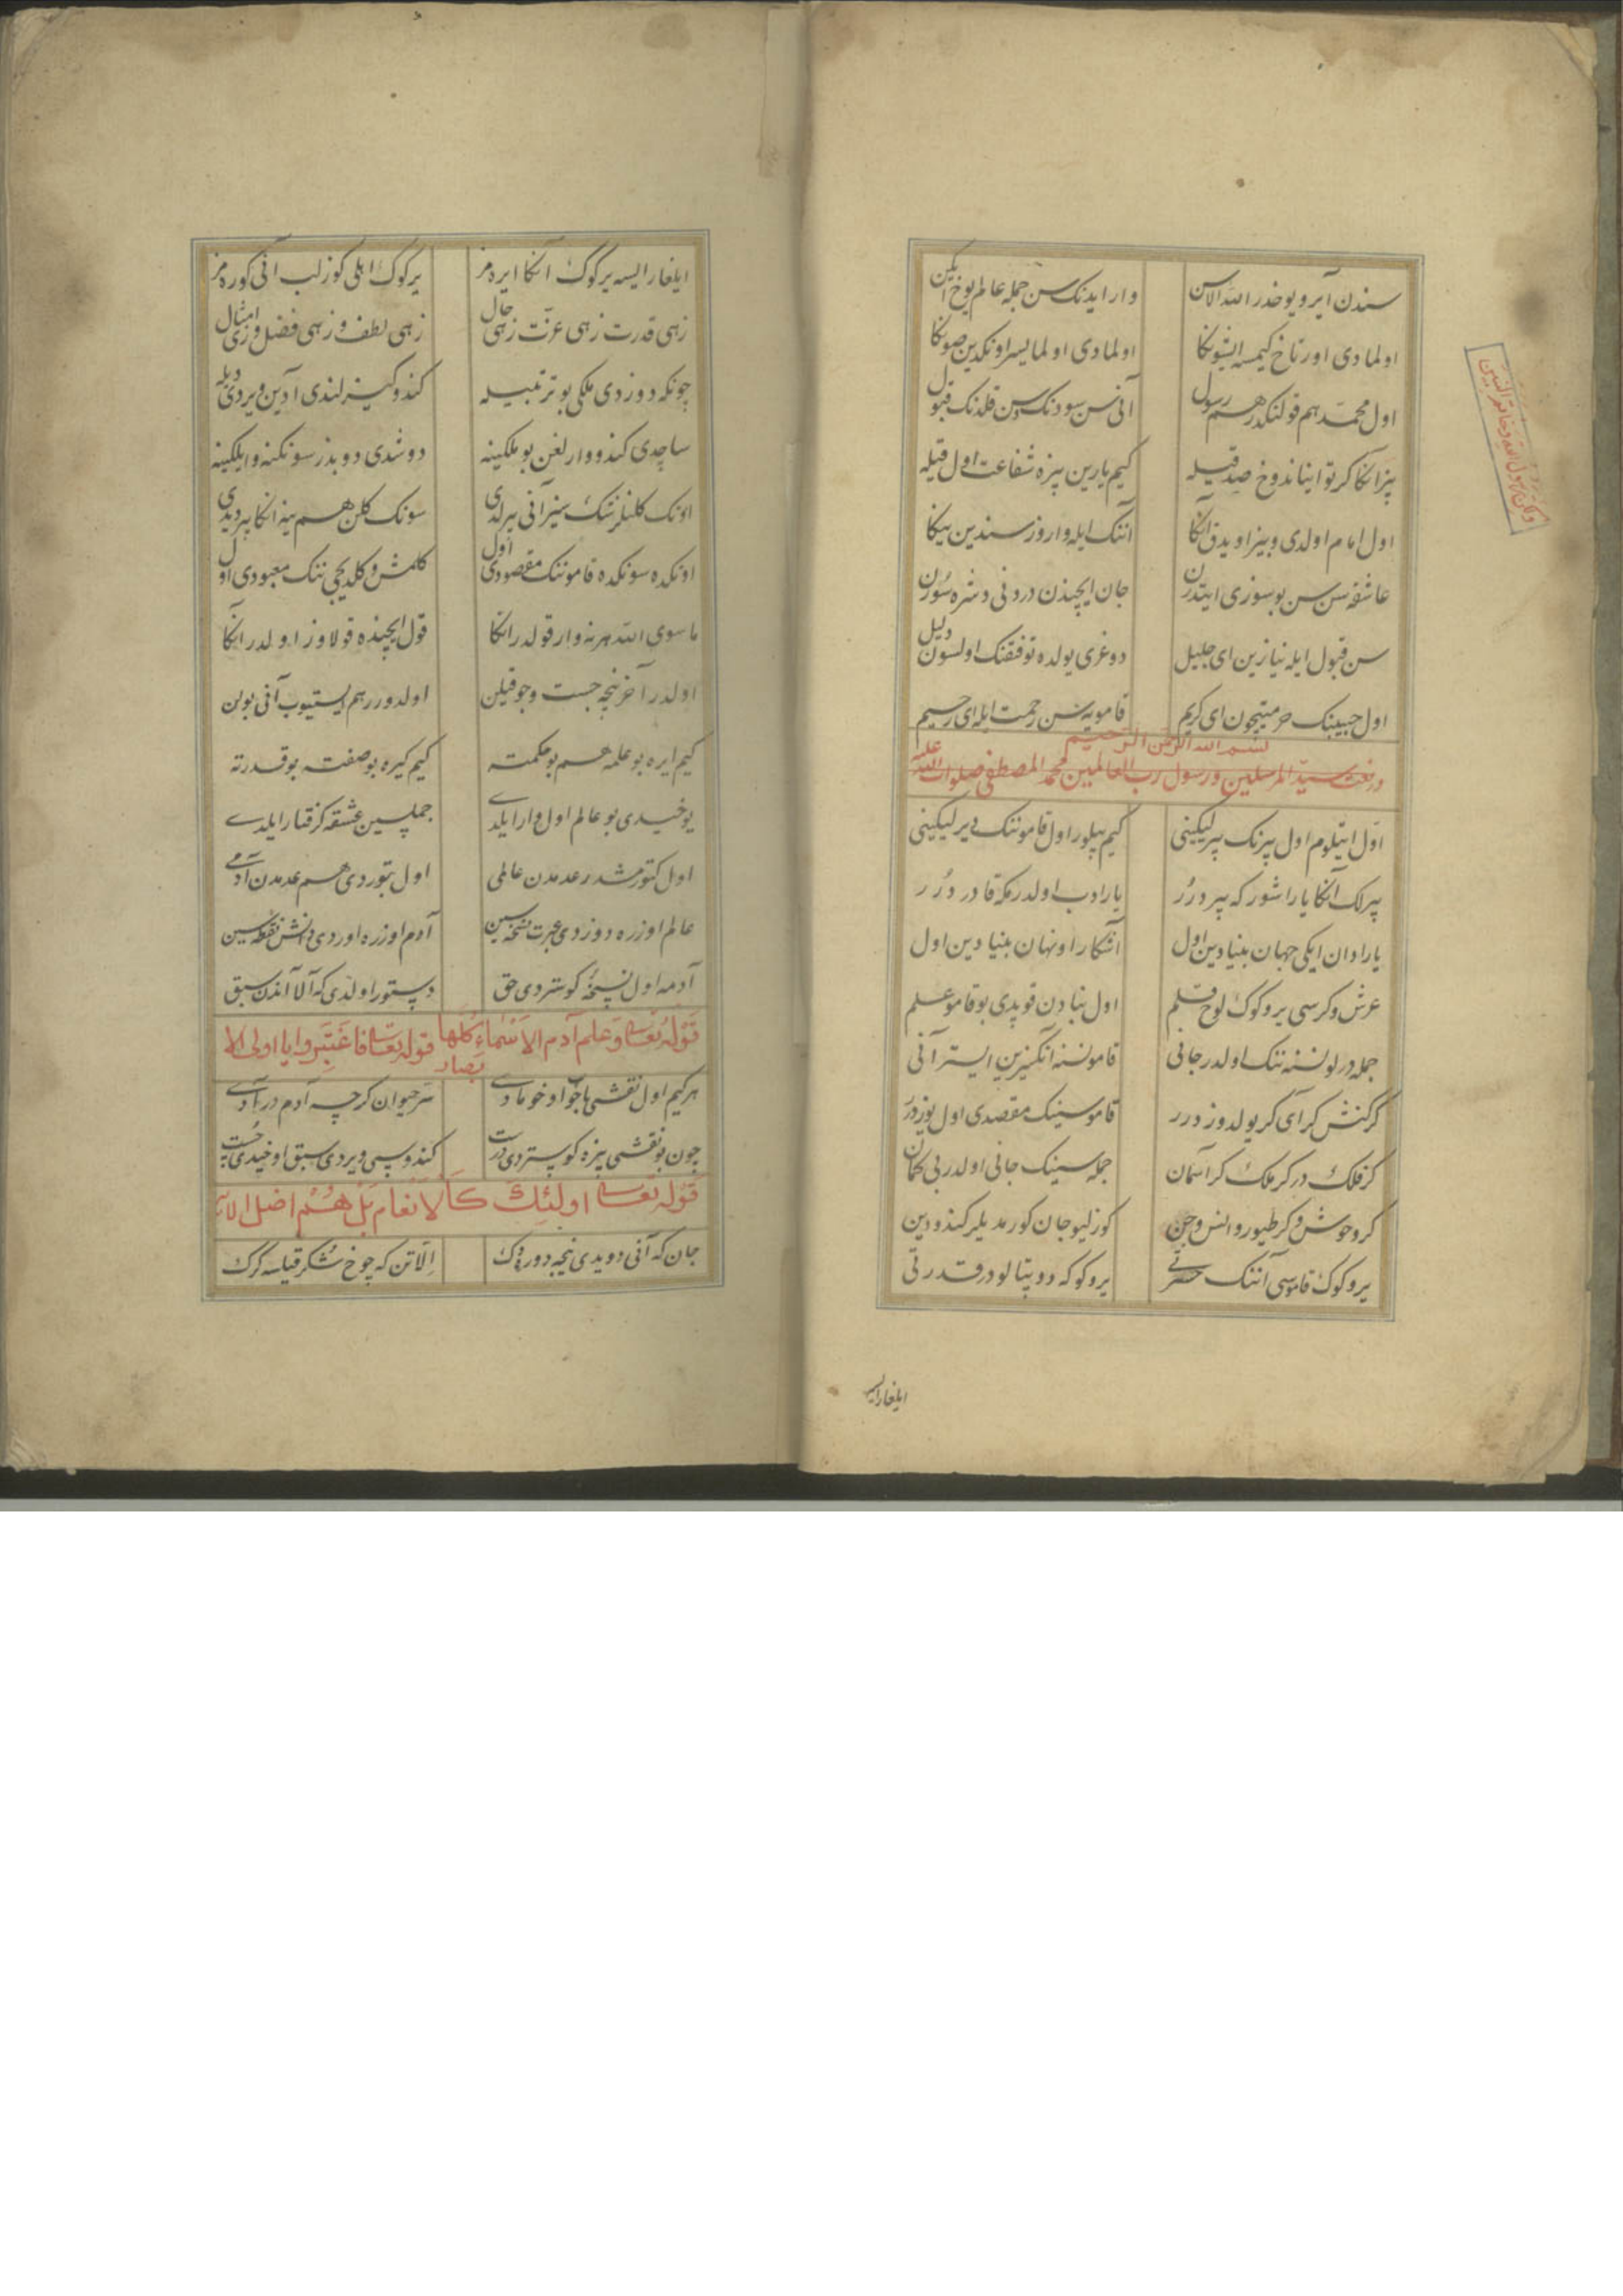 سندن آیرو یوخدر الله الاسن وار ایدنك سن جمله عالم یوخ ایكن
اولمادی اورتاخ كیمسه ایشونكا اولمادی اولمایسر اونكدین صونكا
اول محمد هم قولنكدر هم رسول آنی سن سودنك وسن قلدنك قبول
بیز انكا كرتو ایناندوخ صدقیله كیم یارین بیزه شفاعت اول قیله
اول امام اولدی و بیز اویدق آنكا آننك ایله واروز سندین ینكا
عاشقه سن سن بو سوزی ایتدرن جان ایچیندن درونی دشره سورن
سن قبول ایله نیازین ای جلیل دوغری یولده توفقنك اولسون دلیل
اول حبیبنك حرمتیچون ای كریم قامویه سن رحمت ایله ای رحیم
بسم الله الرحمن الرحیم
در نعت سید المرسلین و رسول رب العالمین محمد المصطفی صلوات الله علیه
ولكن رسول الله وخاتم النبیین
اول ایتلوم اول بیرنك بیرلیكینی كیم بیلور اول قامونك دیرلیكینی
بیرلك آنكا یاراشور كه بیر دُرُر یارادب اولدرمكه قادر دُرُر
یارادان ایكی جهان بنیادین اول آشكارا و نهان بنیادین اول
عرش و كرسی یر و كوك لوح قلم اول بنیادن قوپدی بو قامو علم
جمله درلو نسنه ننك اولدر جانی قامو نسنه آنكسزین ایستر آنی
كر كنش كر آی كر یولدوز درر قاموسینك مقصدی اول یوز درر
كر فلك در كر ملك كر آسمان جمله سینك جانی اولدر بی كمان
كر وحوش و كر طیور و انس و جن كوزلیو جان كورمدیلر كندودین
یر و كوك قاموسی آننك حضرتی یر و كوكه دوپتالودر قدرتی
ایلغار ایسه
ایلغار ایسه یر كوك انكا ایره مز یر كوك اهلی كوزلب آنی كوره مز
زهی قدرت زهی عزت زهی حال زهی لطف و زهی فضل و زهی امثال
چونكه دوزدی ملكی بو ترتیبیله كندو كیزلندی آدین ویردی دیله
ساچدی كندو وارلغن بو ملكینه دوشدی دوبدز سونكنه و ایلكینه
اونك كلنلرننك بیز آنی بیرلدی سونك كلن هم ینه انكا بیردیدی
اونكده سونكده قامونك مقصودی اول كلمش و كلدیجی ننك معبودی اول
ما سوی الله هر نه وار قولدر انكا قول ایچینده قولاوز اولدر انكا
اولدر آخر نیجه جست و جو قیلن اولدورر هم ایستیوب آنی بولن
كیم ایره بو علمه هم بو حكمته كیم كیره بو صفته بو قدرته
یوخیدی بو عالم اول وار ایلدی جمله سین عشقه كرفتار ایلدی
اول كتورمشدر عدمدن عالمی اول بتوردی هم عدمدن آدمی
عالم اوزره دوزدی عبرت نسخه سین آدم اوزره اوردی دانش نقطه سین
آدمه اول نسخه كوستردی حق دستور اولدی كه آلا آندن سبق
قوله تعالی وعلم آدم الاسماء كلها قوله تعالی فاعتبروا یا اولی الابصار
هر كیم اول نقشی باخوا اوخومادی سر حیوان كرچه آدم در آدی
چون بو نقشی بیزه كوستردی درست كندوسی ویردی سبق اوخیدی نخست
قوله تعالی اولئك كالانعام بل هم اضل الآیة
جان كه آنی دویدی نیجه دوردوك الا تن كه چوخ شكر قیلسه كرك